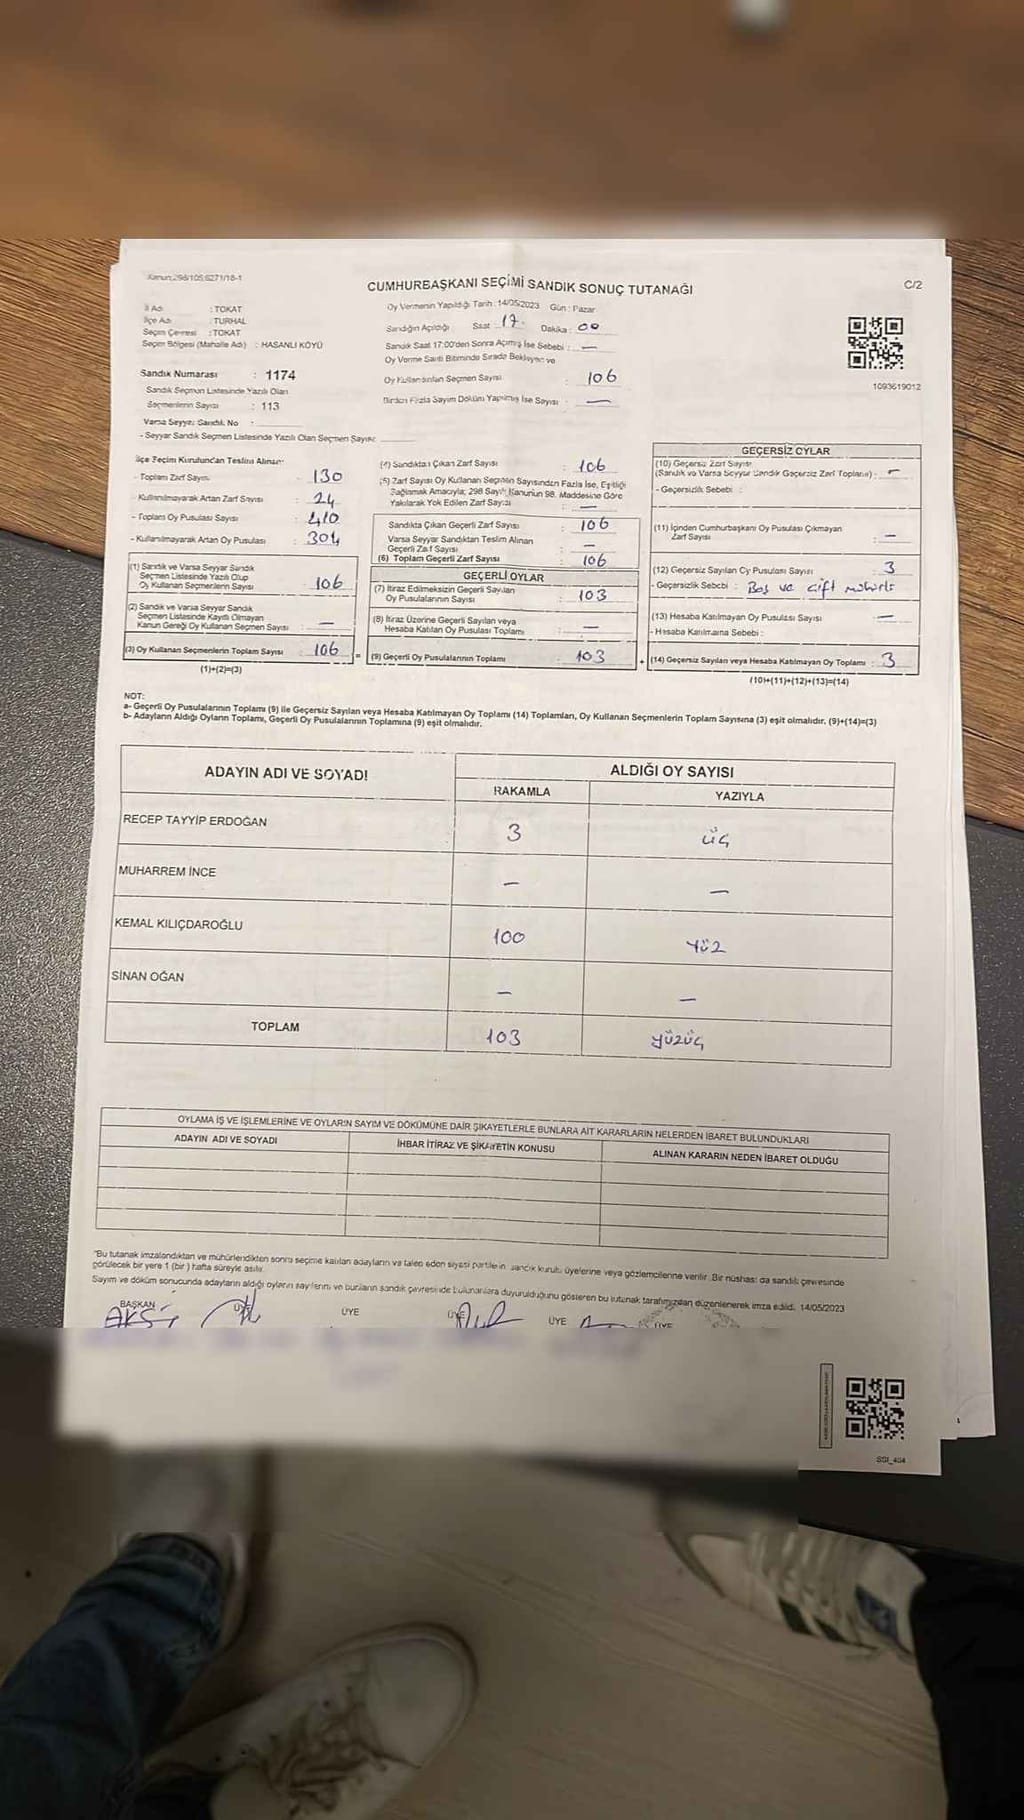 Kanun:298/105;6271/18-1
CUMHURBAŞKANI SEÇİMİ SANDIK SONUÇ TUTANAĞI
C/2
İl Adı : TOKAT
İlçe Adı : TURHAL
Seçim Çevresi : TOKAT
Seçim Bölgesi (Mahalle Adı) : HASANLI KÖYÜ
Sandık Numarası : 1174
Sandık Seçmen Listesinde Yazılı Olan
Seçmenlerin Sayısı : 113
Varsa Seyyar Sandık No :
- Seyyar Sandık Seçmen Listesinde Yazılı Olan Seçmen Sayısı:
Oy Vermenin Yapıldığı Tarih : 14/05/2023 Gün : Pazar
Sandığın Açıldığı Saat : 17 Dakika : 00
Sandık Saat 17:00'den Sonra Açılmış İse Sebebi : —
Oy Verme Saati Bitiminde Sırada Bekleyen ve
Oy Kullandırılan Seçmen Sayısı : 106
Birden Fazla Sayım Döküm Yapılmış İse Sayısı : —
1093619012
İlçe Seçim Kurulundan Teslim Alınan:
- Toplam Zarf Sayısı : 130
- Kullanılmayarak Artan Zarf Sayısı : 24
- Toplam Oy Pusulası Sayısı : 410
- Kullanılmayarak Artan Oy Pusulası : 304
(1) Sandık ve Varsa Seyyar Sandık
Seçmen Listesinde Yazılı Olup
Oy Kullanan Seçmenlerin Sayısı : 106
(2) Sandık ve Varsa Seyyar Sandık
Seçmen Listesinde Kayıtlı Olmayan
Kanun Gereği Oy Kullanan Seçmen Sayısı : —
(3) Oy Kullanan Seçmenlerin Toplam Sayısı : 106
(1)+(2)=(3)
(4) Sandıktan Çıkan Zarf Sayısı : 106
(5) Zarf Sayısı Oy Kullanan Seçmen Sayısından Fazla İse, Eşitliği
Sağlamak Amacıyla; 298 Sayılı Kanunun 98. Maddesine Göre
Yakılarak Yok Edilen Zarf Sayısı : —
Sandıkta Çıkan Geçerli Zarf Sayısı : 106
Varsa Seyyar Sandıktan Teslim Alınan
Geçerli Zarf Sayısı : —
(6) Toplam Geçerli Zarf Sayısı : 106
=
GEÇERLİ OYLAR
(7) İtiraz Edilmeksizin Geçerli Sayılan
Oy Pusulalarının Sayısı : 103
(8) İtiraz Üzerine Geçerli Sayılan veya
Hesaba Katılan Oy Pusulası Toplamı : —
(9) Geçerli Oy Pusulalarının Toplamı : 103
+
GEÇERSİZ OYLAR
(10) Geçersiz Zarf Sayısı
(Sandık ve Varsa Seyyar Sandık Geçersiz Zarf Toplamı) : —
- Geçersizlik Sebebi :
(11) İçinden Cumhurbaşkanı Oy Pusulası Çıkmayan
Zarf Sayısı : —
(12) Geçersiz Sayılan Oy Pusulası Sayısı : 3
- Geçersizlik Sebebi : Boş ve çift mühürlü
(13) Hesaba Katılmayan Oy Pusulası Sayısı : —
- Hesaba Katılmama Sebebi :
(14) Geçersiz Sayılan veya Hesaba Katılmayan Oy Toplamı : 3
(10)+(11)+(12)+(13)=(14)
NOT:
a- Geçerli Oy Pusulalarının Toplamı (9) ile Geçersiz Sayılan veya Hesaba Katılmayan Oy Toplamı (14) Toplamları, Oy Kullanan Seçmenlerin Toplam Sayısına (3) eşit olmalıdır. (9)+(14)=(3)
b- Adayların Aldığı Oyların Toplamı, Geçerli Oy Pusulalarının Toplamına (9) eşit olmalıdır.
ADAYIN ADI VE SOYADI
ALDIĞI OY SAYISI
RAKAMLA YAZIYLA
RECEP TAYYİP ERDOĞAN 3 üç
MUHARREM İNCE — —
KEMAL KILIÇDAROĞLU 100 yüz
SİNAN OĞAN — —
TOPLAM 103 yüzüç
OYLAMA İŞ VE İŞLEMLERİNE VE OYLARIN SAYIM VE DÖKÜMÜNE DAİR ŞİKAYETLERLE BUNLARA AİT KARARLARIN NELERDEN İBARET BULUNDUKLARI
ADAYIN ADI VE SOYADI İHBAR İTİRAZ VE ŞİKAYETİN KONUSU ALINAN KARARIN NEDEN İBARET OLDUĞU
"Bu tutanak imzalandıktan ve mühürlendikten sonra seçime katılan adayların ve talep eden siyasi partilerin sandık kurulu üyelerine veya gözlemcilerine verilir. Bir nüshası da sandık çevresinde
görülecek bir yere 1 (bir) hafta süreyle asılır.
Sayım ve döküm sonucunda adayların aldığı oyların sayılarını ve bunların sandık çevresinde bulunanlara duyurulduğunu gösteren bu tutanak tarafımızdan düzenlenerek imza edildi. 14/05/2023
BAŞKAN ÜYE ÜYE ÜYE ÜYE ÜYE
SSI_404